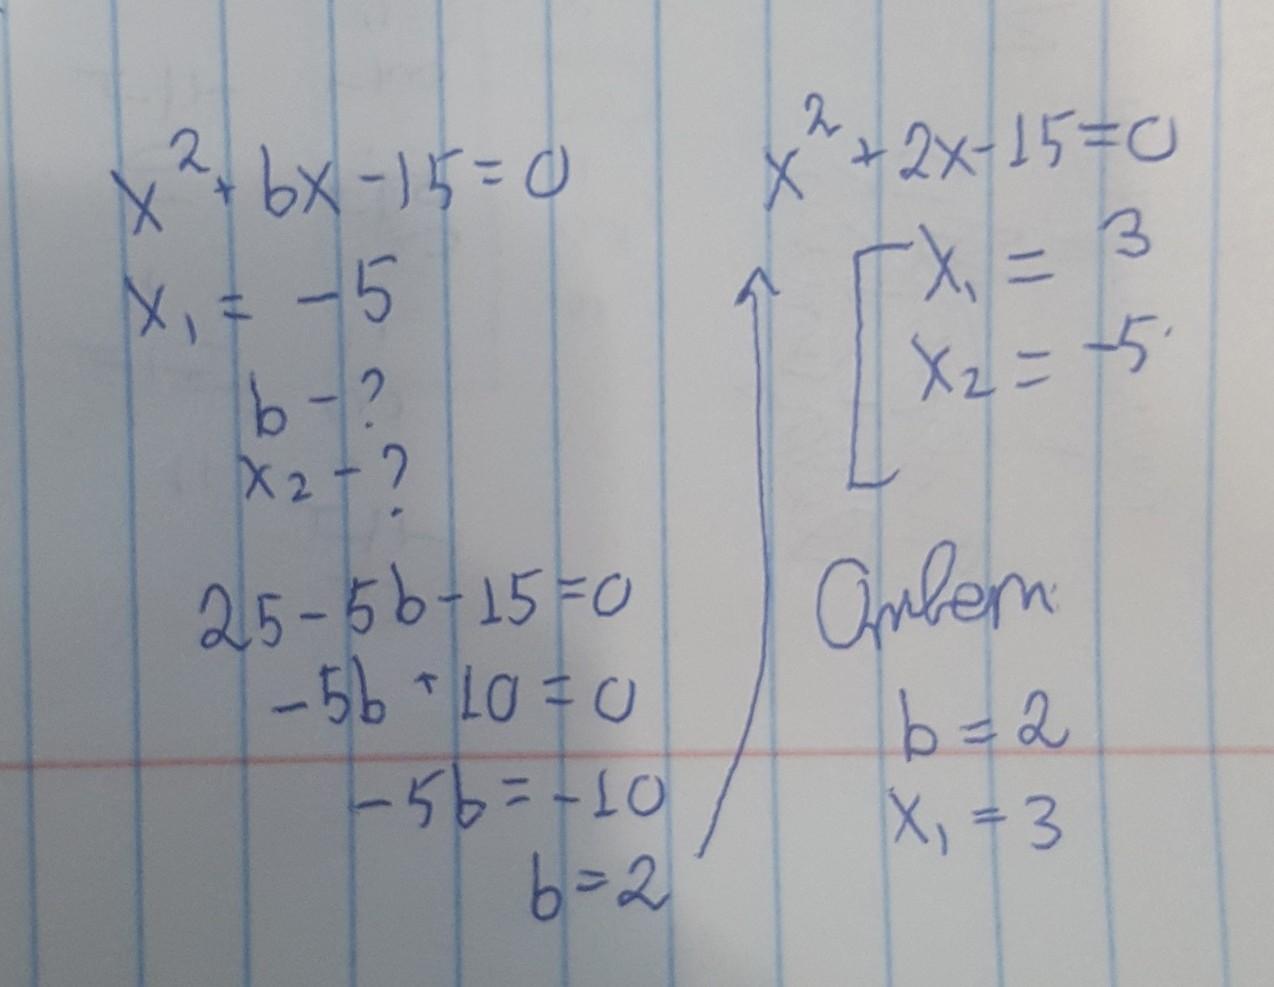 x² + bx - 15 = 0
x₁ = -5
b - ?
x₂ - ?
25 - 5b - 15 = 0
-5b + 10 = 0
-5b = -10
b = 2
x² + 2x - 15 = 0
x₁ = 3
x₂ = -5
Ответ:
b = 2
x₁ = 3